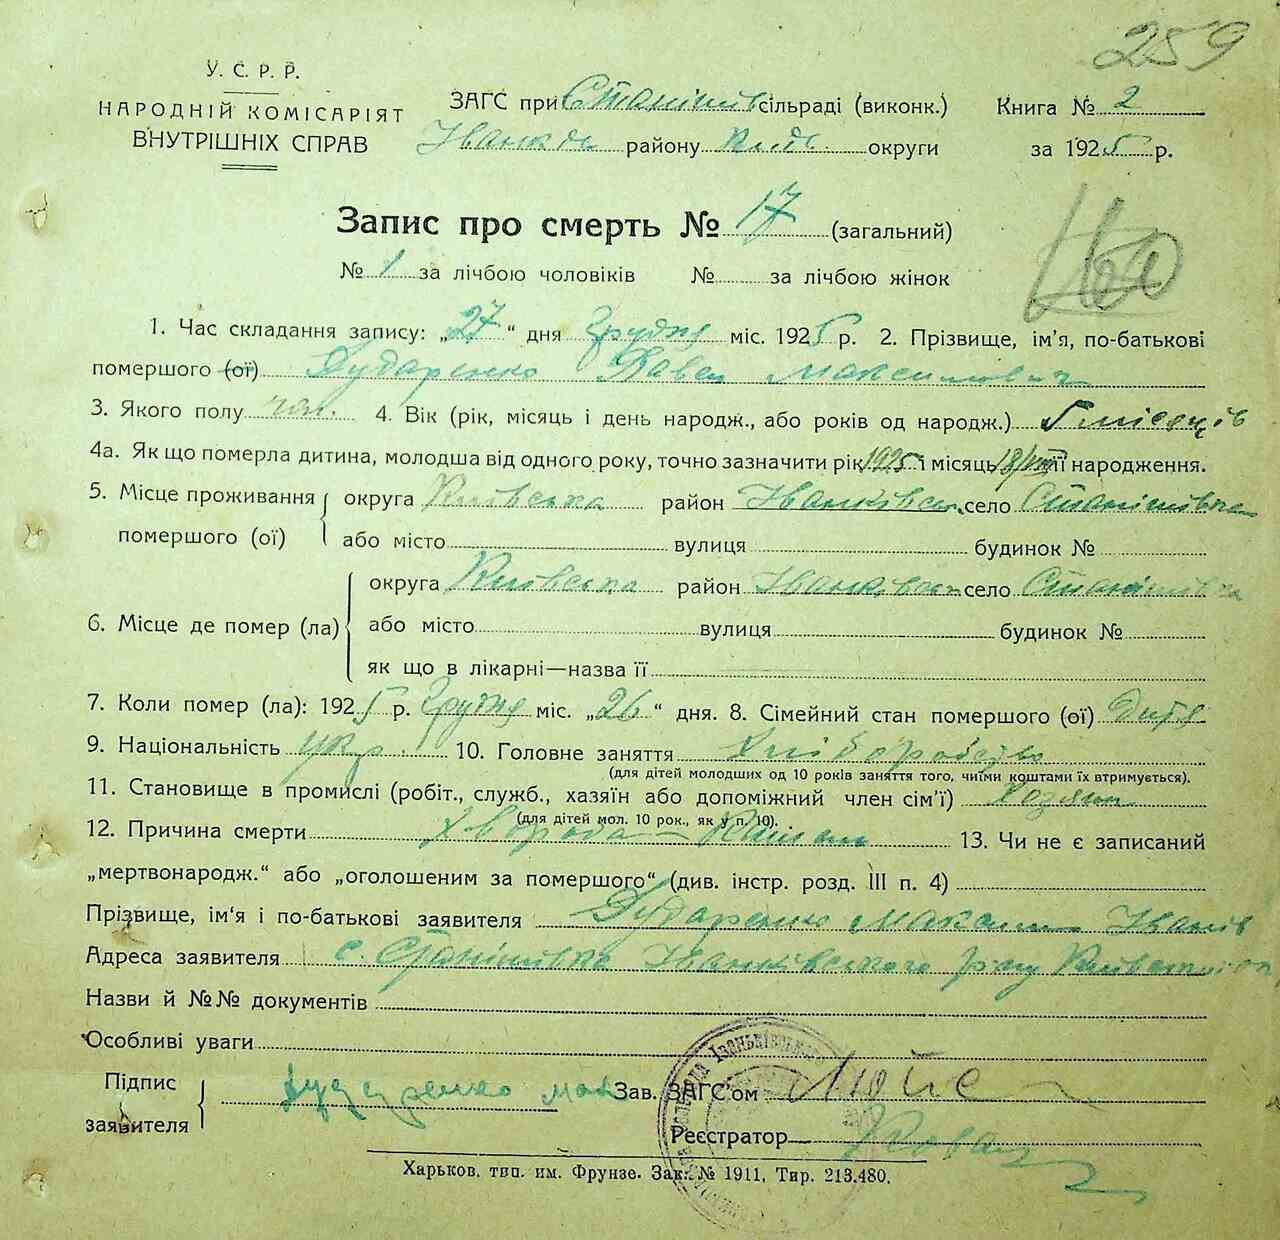 259
У. С. Р. Р.
НАРОДНІЙ КОМІСАРІЯТ
ВНУТРІШНІХ СПРАВ
ЗАГС при Станішів сільраді (виконк.)
Іванків району Київ округи
Книга № 2
за 1925 р.
Запис про смерть № 17 (загальний)
№ 1 за лічбою чоловіків № за лічбою жінок
1. Час складання запису: „27“ дня Грудня міс. 1925 р. 2. Прізвище, ім'я, по-батькові
помершого (ої) Дударенко Павел Максимович
3. Якого полу чол. 4. Вік (рік, місяць і день народж., або років од народж.) 5 місяців
4а. Як що померла дитина, молодша від одного року, точно зазначити рік 1925 і місяць 18/VIII її народження.
5. Місце проживання помершого (ої) округа Київська район Іванківськ село Станішівка
або місто вулиця будинок №
6. Місце де помер (ла) округа Київська район Іванківськ село Станішівка
або місто вулиця будинок №
як що в лікарні—назва її
7. Коли помер (ла): 1925 р. Грудня міс. „26“ дня. 8. Сімейний стан помершого (ої) Дитя
9. Національність укр. 10. Головне заняття Хліборобство
(для дітей молодших од 10 років заняття того, чиїми коштами їх втримується).
11. Становище в промислі (робіт., служб., хазяїн або допоміжний член сім'ї) Хозяин
(для дітей мол. 10 рок., як у п. 10).
12. Причина смерти Хвороба — Кашель 13. Чи не є записаний
„мертвонародж.“ або „оголошеним за помершого“ (див. інстр. розд. III п. 4)
Прізвище, ім'я і по-батькові заявителя Дударенко Максим Іванів
Адреса заявителя с. Станішівка Іванківського р-ну Київськ
Назви й №№ документів
Особливі уваги
Підпис заявителя Дударенко мак
Зав. ЗАГС'ом
Реєстратор
Харьков. тип. им. Фрунзе. Зак. № 1911. Тир. 213.480.